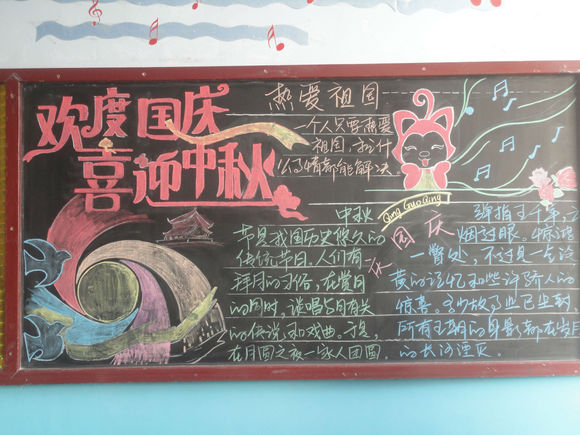 欢度国庆
喜迎中秋
热爱祖国
一个人只要热爱
祖国,
么事情都能解决。
中秋
节是我国历史悠久的
传统节日。人们有
拜月的习俗,在赏月
的同时,谈唱与月有关
的传说和戏曲。于是,
在月圆之夜一家人团圆。
Qing Guo Qing
国庆
弹指五千年,
烟过眼。惊鸿
一瞥处,不过是一卷泛
黄的记忆和些许醉人的
惊喜。多少故事业已尘封,
所有王朝的身影都在岁月
的长河湮灭。